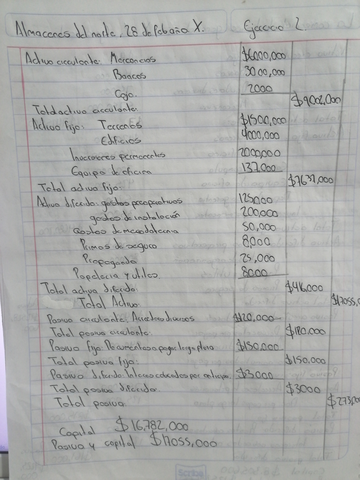 Almacenes del norte, 28 de Feb año X. Ejercicio 2
Activo circulante: Mercancias $6000,000
Bancos 3000,000
Caja 2000
Total activo circulante $9002,000
Activo fijo: Terrenos $1500,000
Edificios 4000,000
Inversiones permanentes 2000,000
Equipo de oficina 137,000
Total activo fijo: $7637,000
Activo diferido: gastos preoperativos 125,000
gastos de instalación 200,000
Gastos de mercadotecnia 50,000
Primas de seguro 8,000
Propaganda 25,000
Papeleria y utiles 8000
Total activo diferido $416,000
Total Activo $17055,
Pasivo circulante: Acreedores diversos $120,000
Total pasivo circulante $120,000
Pasivo fijo: Documentos a pagar largo plazo $150,000
Total pasivo fijo: $150,000
Pasivo diferido: Intereses cobrados por $3000
Total pasivo diferido $3000
Total pasivo $273,00
Capital $16,782,000
Pasivo y capital $17055,000